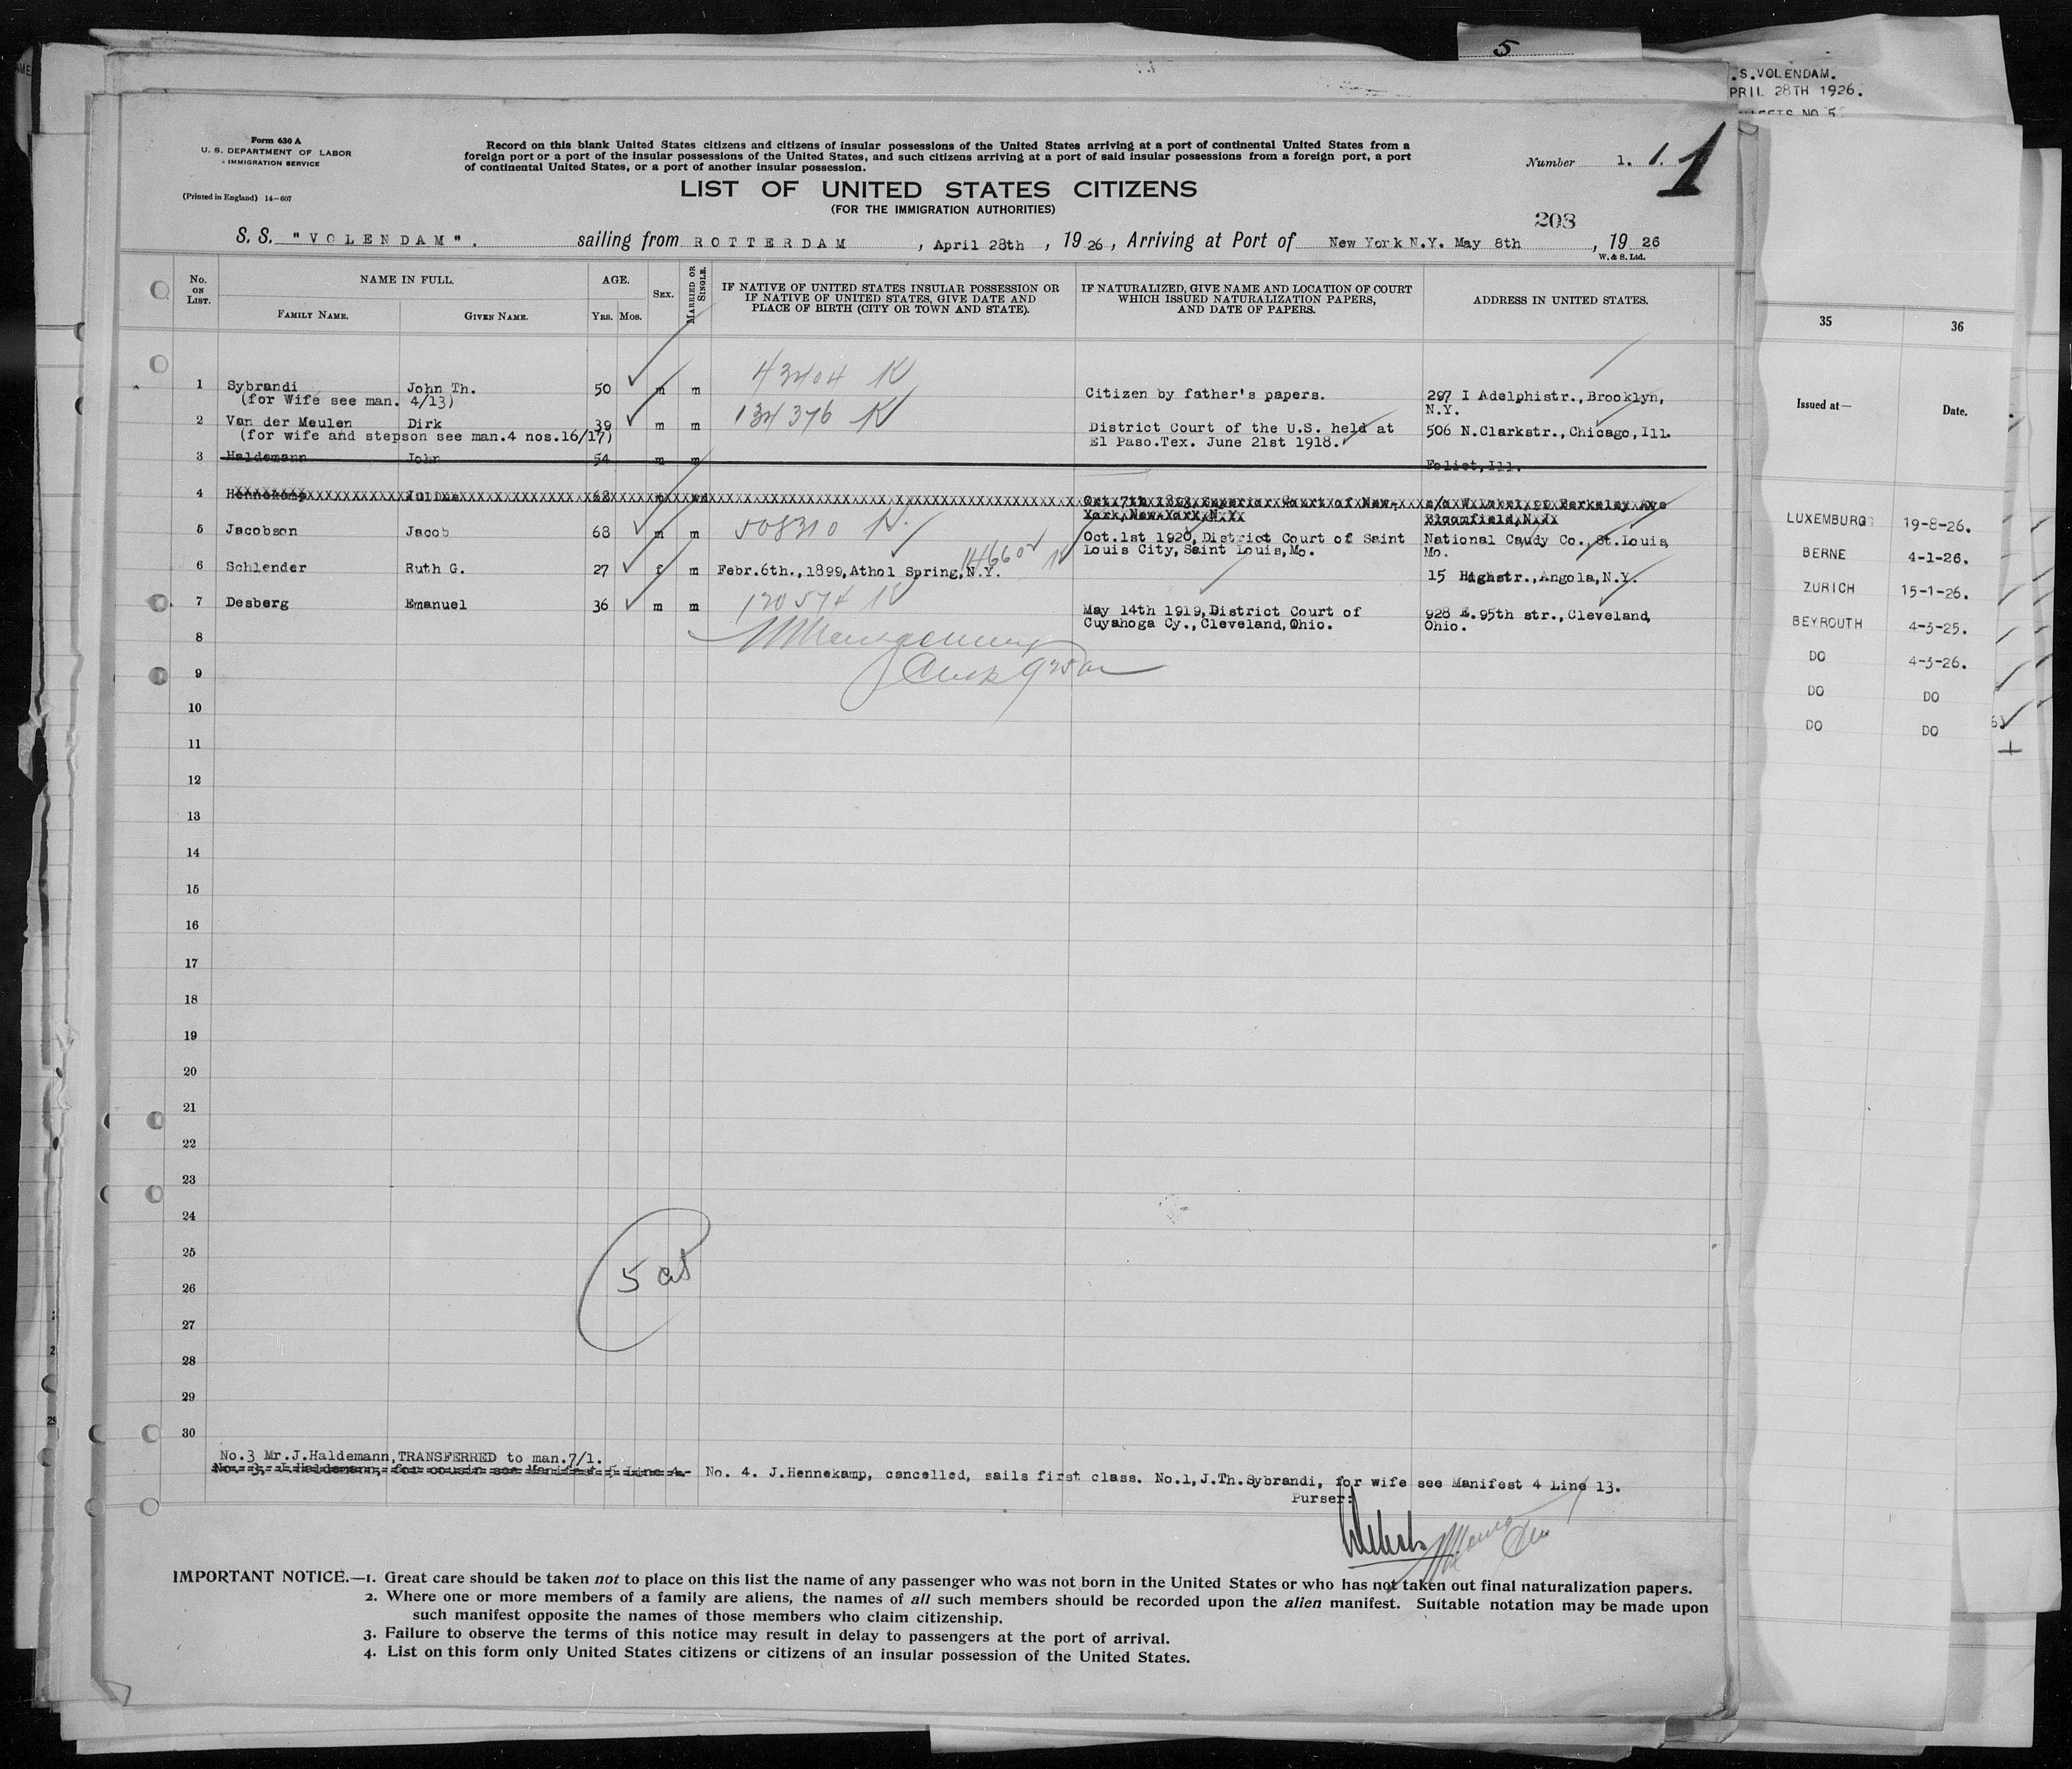 5
.S.VOLENDAM.
PRIL 28TH 1926.
Form 630 A
U. S. DEPARTMENT OF LABOR
IMMIGRATION SERVICE
(Printed in England) 14—607
Record on this blank United States citizens and citizens of insular possessions of the United States arriving at a port of continental United States from a
foreign port or a port of the insular possessions of the United States, and such citizens arriving at a port of said insular possessions from a foreign port, a port
of continental United States, or a port of another insular possession.
Number 1. 1. 1
LIST OF UNITED STATES CITIZENS
(FOR THE IMMIGRATION AUTHORITIES)
208
S. S. "VOLENDAM". sailing from ROTTERDAM, April 28th, 1926, Arriving at Port of New York N.Y. May 8th, 1926
W. & S. Ltd.
No. ON LIST. NAME IN FULL. FAMILY NAME. GIVEN NAME. AGE. YRS. MOS. SEX. MARRIED OR SINGLE.
IF NATIVE OF UNITED STATES INSULAR POSSESSION OR
IF NATIVE OF UNITED STATES, GIVE DATE AND
PLACE OF BIRTH (CITY OR TOWN AND STATE).
IF NATURALIZED, GIVE NAME AND LOCATION OF COURT
WHICH ISSUED NATURALIZATION PAPERS,
AND DATE OF PAPERS.
ADDRESS IN UNITED STATES.
1 Sybrandi John Th. 50 m m 43404 K Citizen by father's papers. 297 I Adelphistr., Brooklyn,
(for Wife see man. 4/13) N.Y.
2 Van der Meulen Dirk 39 m m 134376 K District Court of the U.S. held at 506 N.Clarkstr., Chicago, Ill.
(for wife and stepson see man.4 nos.16/17) El Paso.Tex. June 21st 1918.
3 Haldemann John 54 m m Foliet, Ill.
4 Hennekamp 68 Oct 7th Superior Court of New- Berkeley Ave
York, New York, N.Y. Bloomfield, N.J.
5 Jacobson Jacob 68 m m 508310 K. Oct.1st 1920, District Court of Saint National Candy Co., St.Louis,
Louis City, Saint Louis, Mo. Mo.
6 Schlender Ruth G. 27 f m Febr.6th., 1899, Athol Spring, N.Y. 15 Highstr., Angola, N.Y.
7 Desberg Emanuel 36 m m 120574 K May 14th 1919, District Court of 928 E. 95th str., Cleveland,
Cuyahoga Cy., Cleveland, Ohio. Ohio.
8
9
10
11
12
13
14
15
16
17
18
19
20
21
22
23
24
25
26
27
28
29
30
5
No.3 Mr.J.Haldemann, TRANSFERRED to man.7/1.
No. 3, J.Haldemann, for cousin see Manifest 5 Line 4.- No. 4. J.Hennekamp, cancelled, sails first class. No.1, J.Th.Sybrandi, for wife see Manifest 4 Line 13.
Purser:
IMPORTANT NOTICE.—1. Great care should be taken not to place on this list the name of any passenger who was not born in the United States or who has not taken out final naturalization papers.
2. Where one or more members of a family are aliens, the names of all such members should be recorded upon the alien manifest. Suitable notation may be made upon
such manifest opposite the names of those members who claim citizenship.
3. Failure to observe the terms of this notice may result in delay to passengers at the port of arrival.
4. List on this form only United States citizens or citizens of an insular possession of the United States.
35 36
Issued at— Date.
LUXEMBURG 19-8-26.
BERNE 4-1-26.
ZURICH 15-1-26.
BEYROUTH 4-3-25.
DO 4-3-26.
DO DO
DO DO